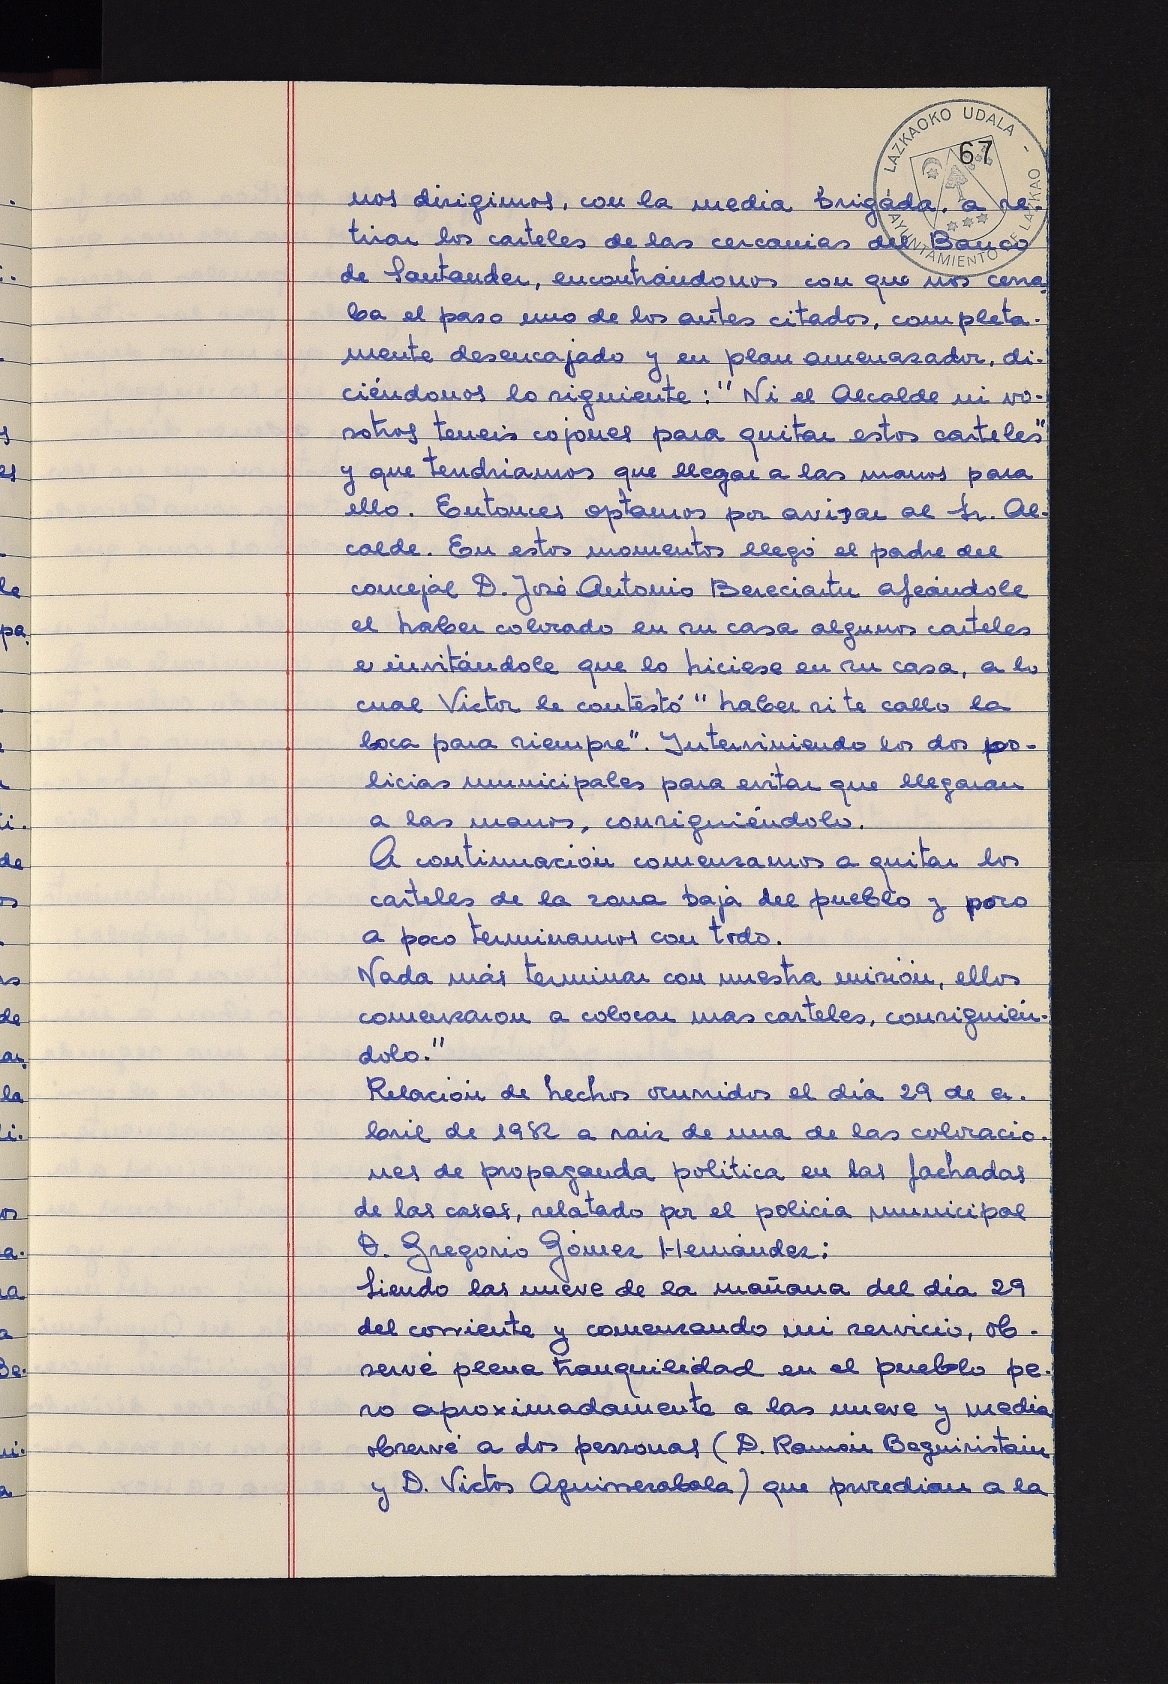 LAZKAOKO UDALA - AYUNTAMIENTO DE LAZKAO -
67
nos dirigimos, con la media brigada, a re-
tirar los carteles de las cercanias del Banco
de Santander, encontrándonos con que nos cerra-
ba el paso uno de los antes citados, completa-
mente desencajado y en plan amenazador, di-
ciéndonos lo siguiente: "Ni el Alcalde ni vo-
sotros teneis cojones para quitar estos carteles"
y que tendriamos que llegar a las manos para
ello. Entonces optamos por avisar al Sr. Al-
calde. En estos momentos llegó el padre del
concejál D. José Antonio Bereciartu afeándole
el haber colocado en su casa algunos carteles
e invitándole que lo hiciese en su casa, a lo
cual Victor le contestó "haber si te callo la
boca para siempre". Interviniendo los dos po-
licias municipales para evitar que llegaran
a las manos, consiguiéndolo.
A continuación comenzamos a quitar los
carteles de la zona baja del pueblo y poco
a poco terminamos con todo.
Nada más terminar con nuestra misión, ellos
comenzaron a colocar mas carteles, consiguién-
dolo."
Relación de hechos ocurridos el día 29 de a-
bril de 1982 a raiz de una de las colocacio-
nes de propaganda politica en las fachadas
de las casas, relatado por el policia municipal
D. Gregorio Gómez Hernández:
Siendo las nueve de la mañana del día 29
del corriente y comenzando mi servicio, ob-
servé plena tranquilidad en el pueblo pe-
ro aproximadamente a las nueve y media
observé a dos personas (D. Ramón Beguiristain
y D. Victos Aguirrezabala) que procedian a la